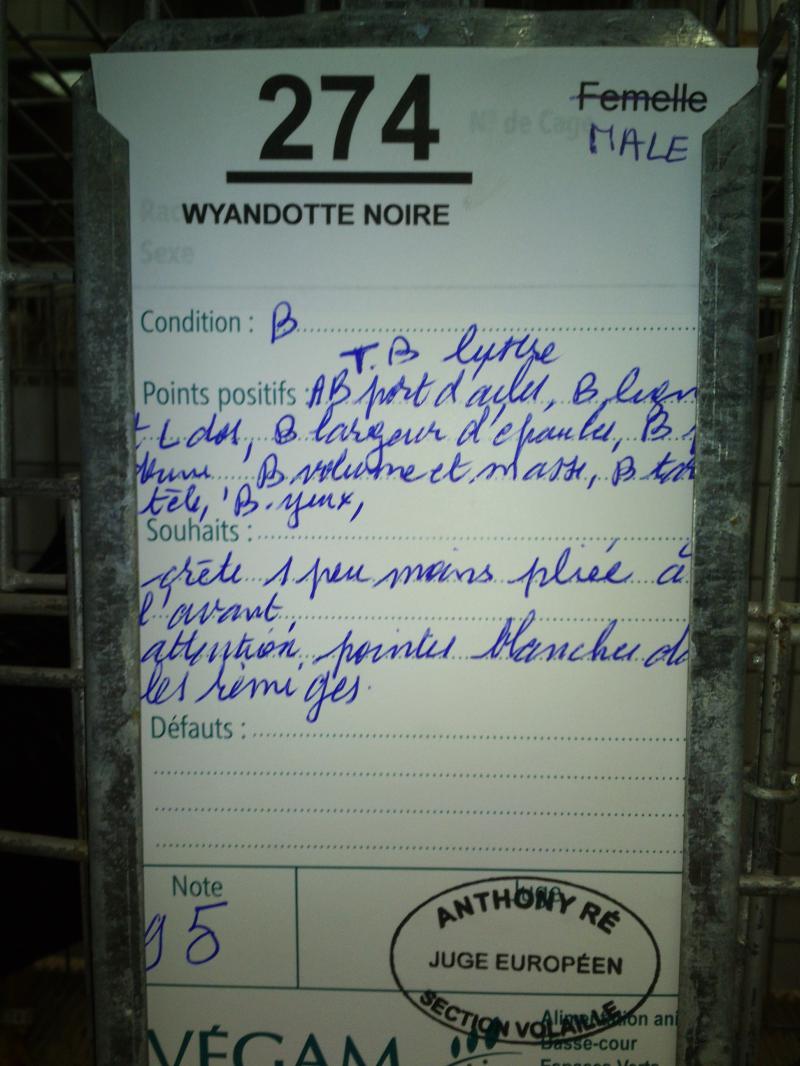 274
Femelle
N° de Cage
MALE
WYANDOTTE NOIRE
Sexe
Condition : B
T.B lustre
Points positifs : AB port d'ailes, B
L dos, B largeur d'épaules, B
B volume et masse, B
tête, B. yeux,
Souhaits :
crête 1 peu moins pliée à
l'avant,
attention, pointes blanches
les rémiges.
Défauts :
Note
Juge
95
ANTHONY RÉ
JUGE EUROPÉEN
SECTION VOLAILLE
VÉGAM
Alimentation ani
Basse-cour
Espaces Verts